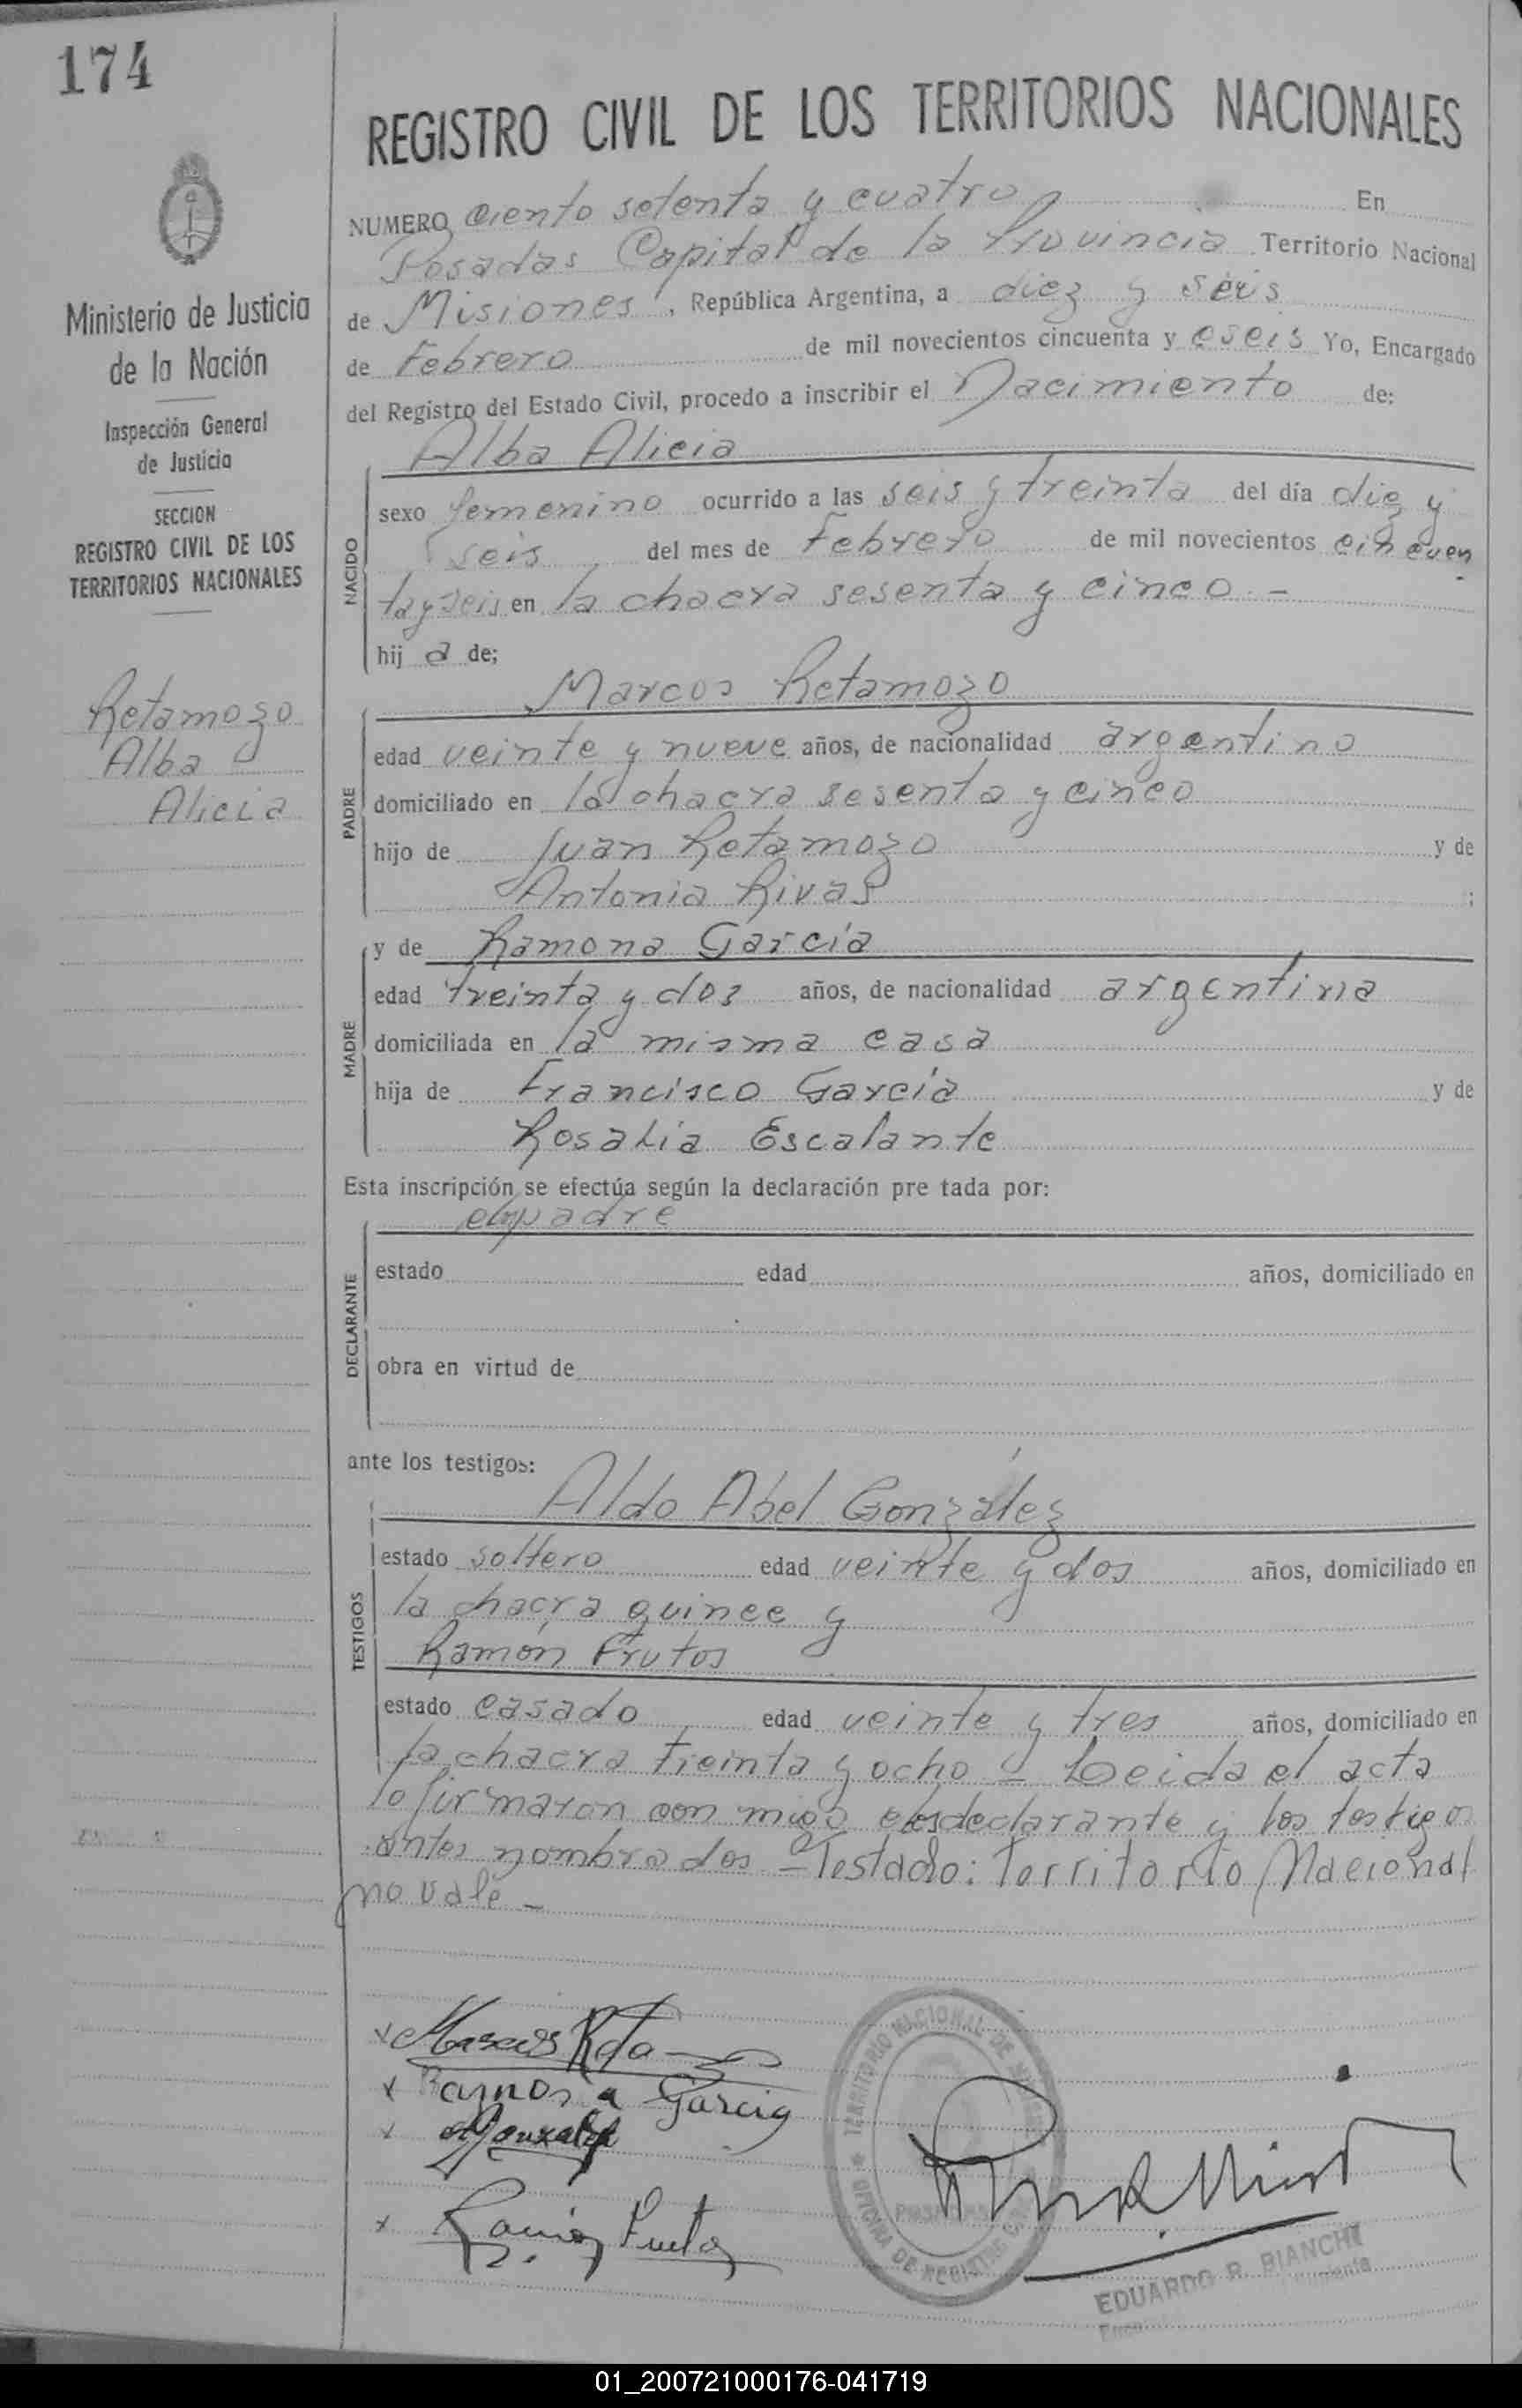 174
REGISTRO CIVIL DE LOS TERRITORIOS NACIONALES
Ministerio de Justicia
de la Nación
Inspección General
de Justicia
SECCION
REGISTRO CIVIL DE LOS
TERRITORIOS NACIONALES
Retamozo
Alba
Alicia
NUMERO ciento setenta y cuatro En
Posadas Capital de la Provincia Territorio Nacional
de Misiones, República Argentina, a diez y seis
de Febrero de mil novecientos cincuenta y eseis Yo, Encargado
del Registro del Estado Civil, procedo a inscribir el Nacimiento de:
Alba Alicia
NACIDO
sexo femenino ocurrido a las seis y treinta del día diez y
seis del mes de Febrero de mil novecientos cincuen
ta y seis en la chacra sesenta y cinco. -
hij a de;
Marcos Retamozo
PADRE
edad veinte y nueve años, de nacionalidad argentino
domiciliado en la chacra sesenta y cinco
hijo de Juan Retamozo y de
Antonia Rivas ;
y de Ramona García
MADRE
edad treinta y dos años, de nacionalidad argentina
domiciliada en la misma casa
hija de Francisco García y de
Rosalia Escalante
Esta inscripción se efectúa según la declaración pre tada por:
el padre
DECLARANTE
estado edad años, domiciliado en
obra en virtud de
ante los testigos:
Aldo Abel González
TESTIGOS
estado soltero edad veinte y dos años, domiciliado en
la chacra quince y
Ramón Frutos
estado casado edad veinte y tres años, domiciliado en
la chacra treinta y ocho - Leida el acta
lo firmaron con migo declarante y los testigos
antes nombrados - Testado: Territorio Nacional
no vale -
Marcos
Ramona Garcia
Gonzalez
Ramón
TERRITORIO NACIONAL DE MISIONES
OFICINA DE REGISTRO CIVIL
POSADAS
EDUARDO R. BIANCHI
01_200721000176-041719